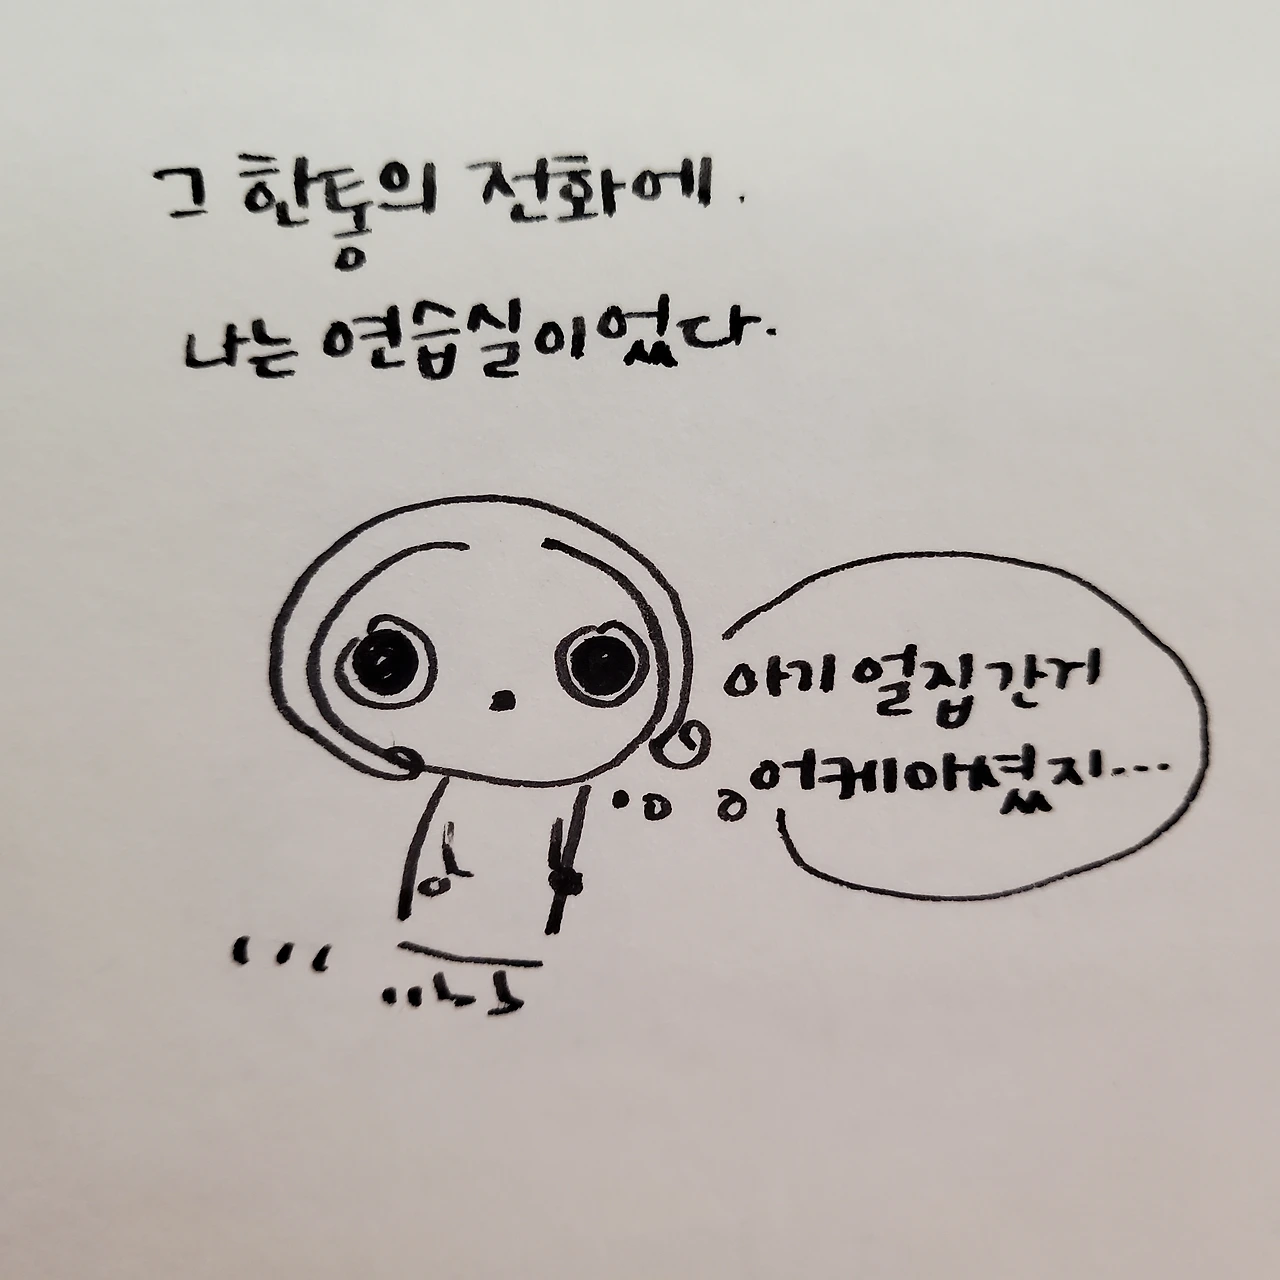 그 한통의 전화에.
나는 연습실이었다.
아기 얼집간거
어케아셨지...